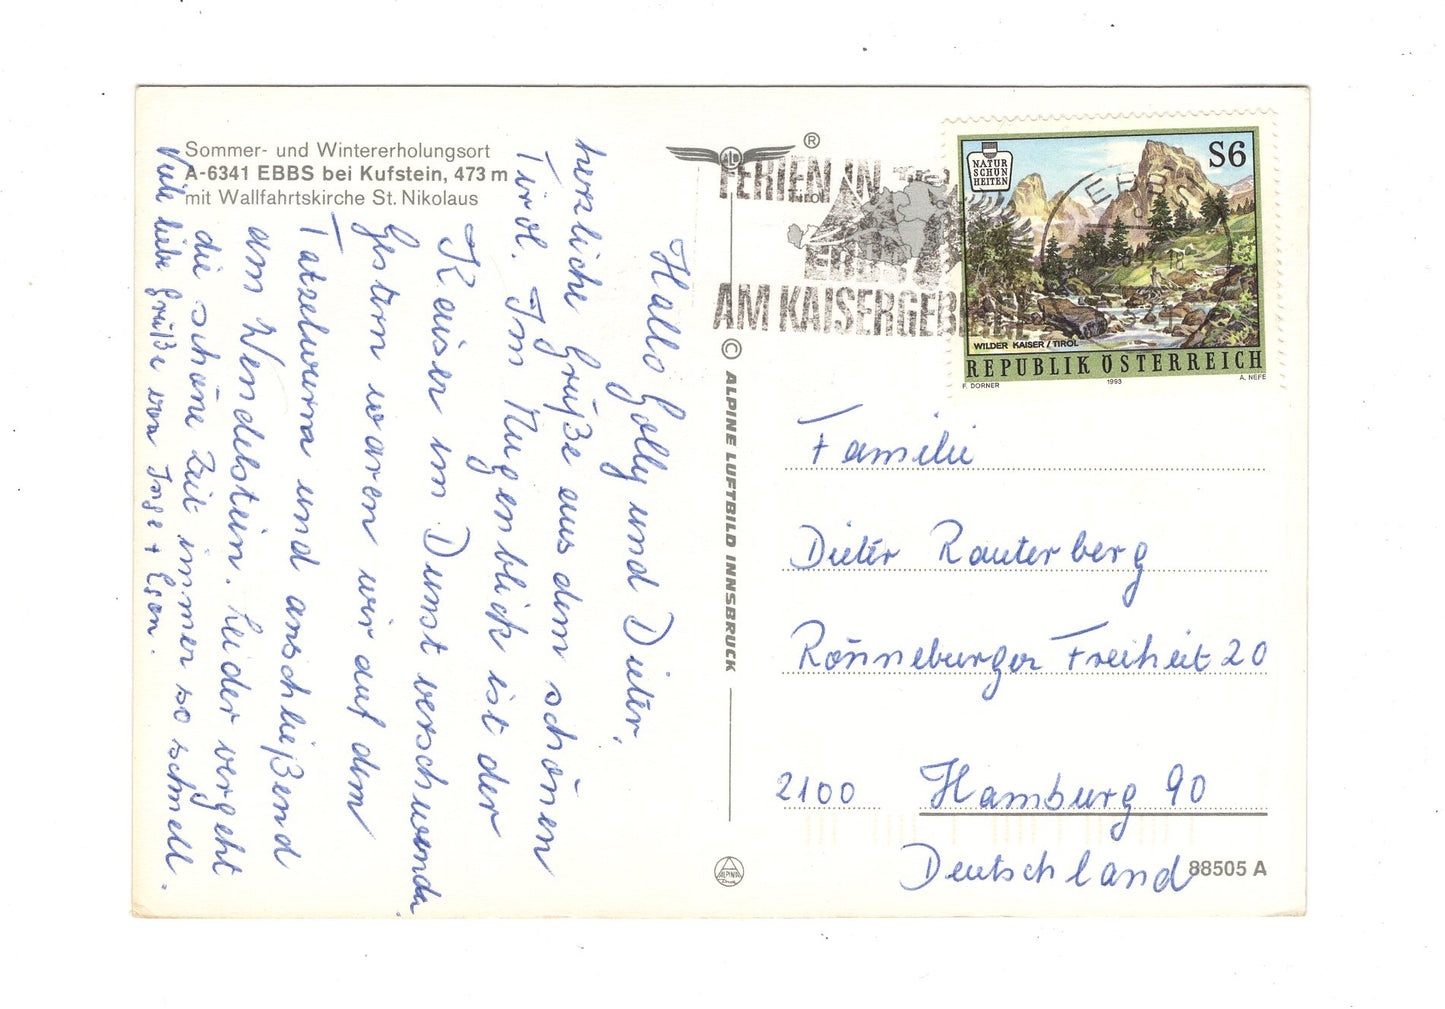 Sommer- und Wintererholungsort
A-6341 EBBS bei Kufstein, 473 m
mit Wallfahrtskirche St. Nikolaus
Hallo Golly und Dieter,
herzliche Grüße aus dem schönen
Tirol. Im Augenblick ist der
Kaiser im Dunst verschwunden.
Gestern waren wir auf dem
Tatzelwurm und anschließend
am Wendelstein. Leider vergeht
die schöne Zeit immer so schnell.
Viele liebe Grüße von Inge + Egon.
ALB
®
Tirol
© ALPINE LUFTBILD INNSBRUCK
ALPINA
Druck
FERIEN IN
EBBS
AM KAISERGEBIRGE
NATUR
SCHÖN
HEITEN
S6
WILDER KAISER / TIROL
REPUBLIK ÖSTERREICH
F. DORNER
1993
A. NEFE
EBBS
6341
Familie
Dieter Rauterberg
Rönneburger Freiheit 20
2100 Hamburg 90
Deutschland
88505 A